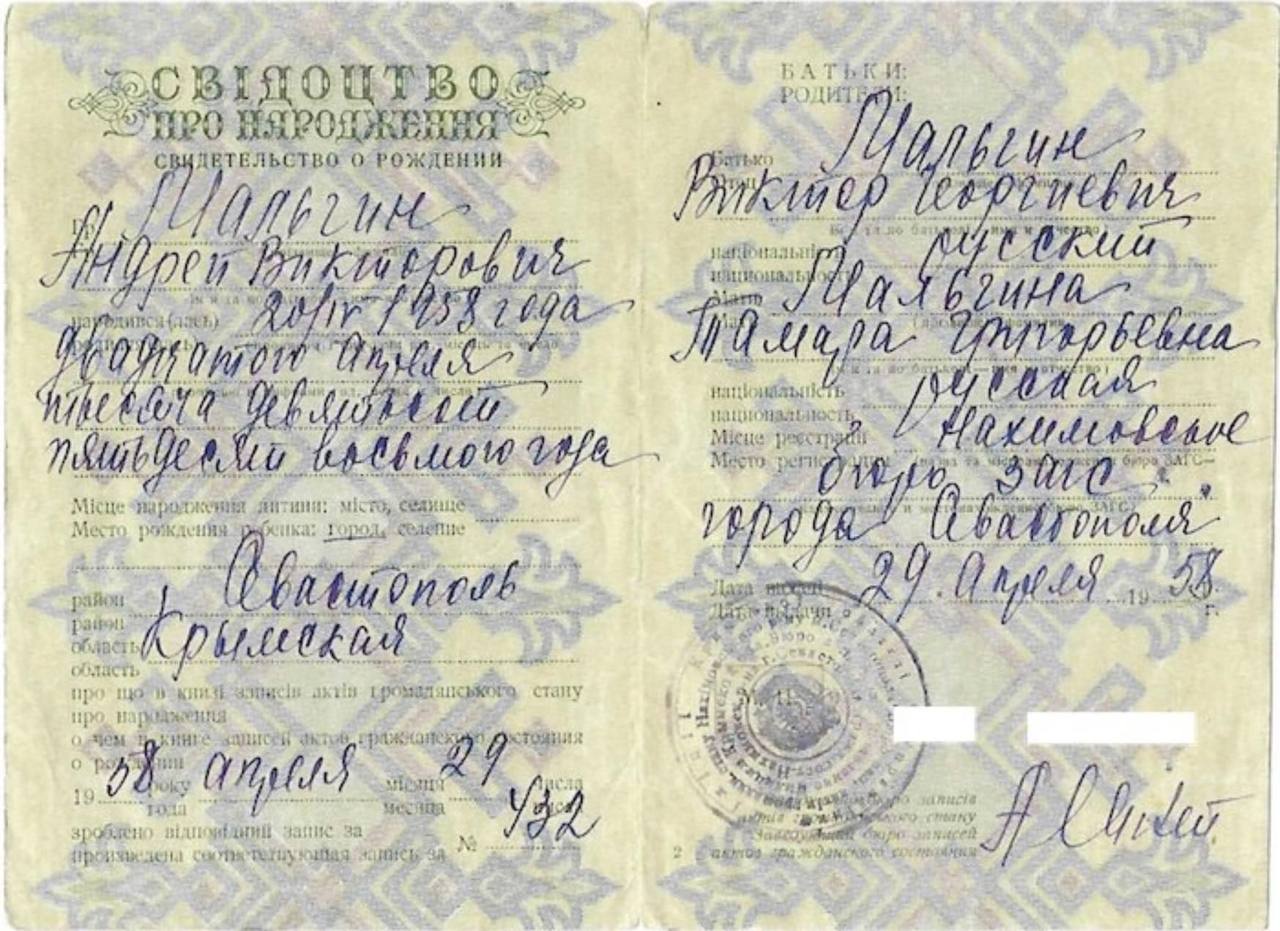 СВІДОЦТВО
ПРО НАРОДЖЕННЯ
СВИДЕТЕЛЬСТВО О РОЖДЕНИИ
Гр. Мальгин
Андрей Викторович
народився(лась) 20/IV 1958 года
двадцатого апреля
тысяча девятьсот
пятьдесят восьмого года
Місце народження дитини: місто, селище
Место рождения ребенка: город, селение
район г. Севастополь
район
область Крымская
область
про що в книзі записів актів громадянського стану
про народження
о чем в книге записей актов гражданского состояния
о рождении
19 58 року апреля місяця 29 числа
года месяца числа
зроблено відповідний запис за
произведена соответствующая запись за № 432
БАТЬКИ:
РОДИТЕЛИ:
Батько Мальгин
Отец Виктор Георгиевич
національність русский
национальность
Мати Мальгина
Тамара Григорьевна
національність русская
национальность
Місце реєстрації Нахимовское
Место регистрации бюро ЗАГС
города Севастополя
Дата видачі 29 апреля 19 58 г.
Дата выдачи
М. П.
бюро записів
актів громадянського стану
Заведующий бюро записей
2 актов гражданского состояния